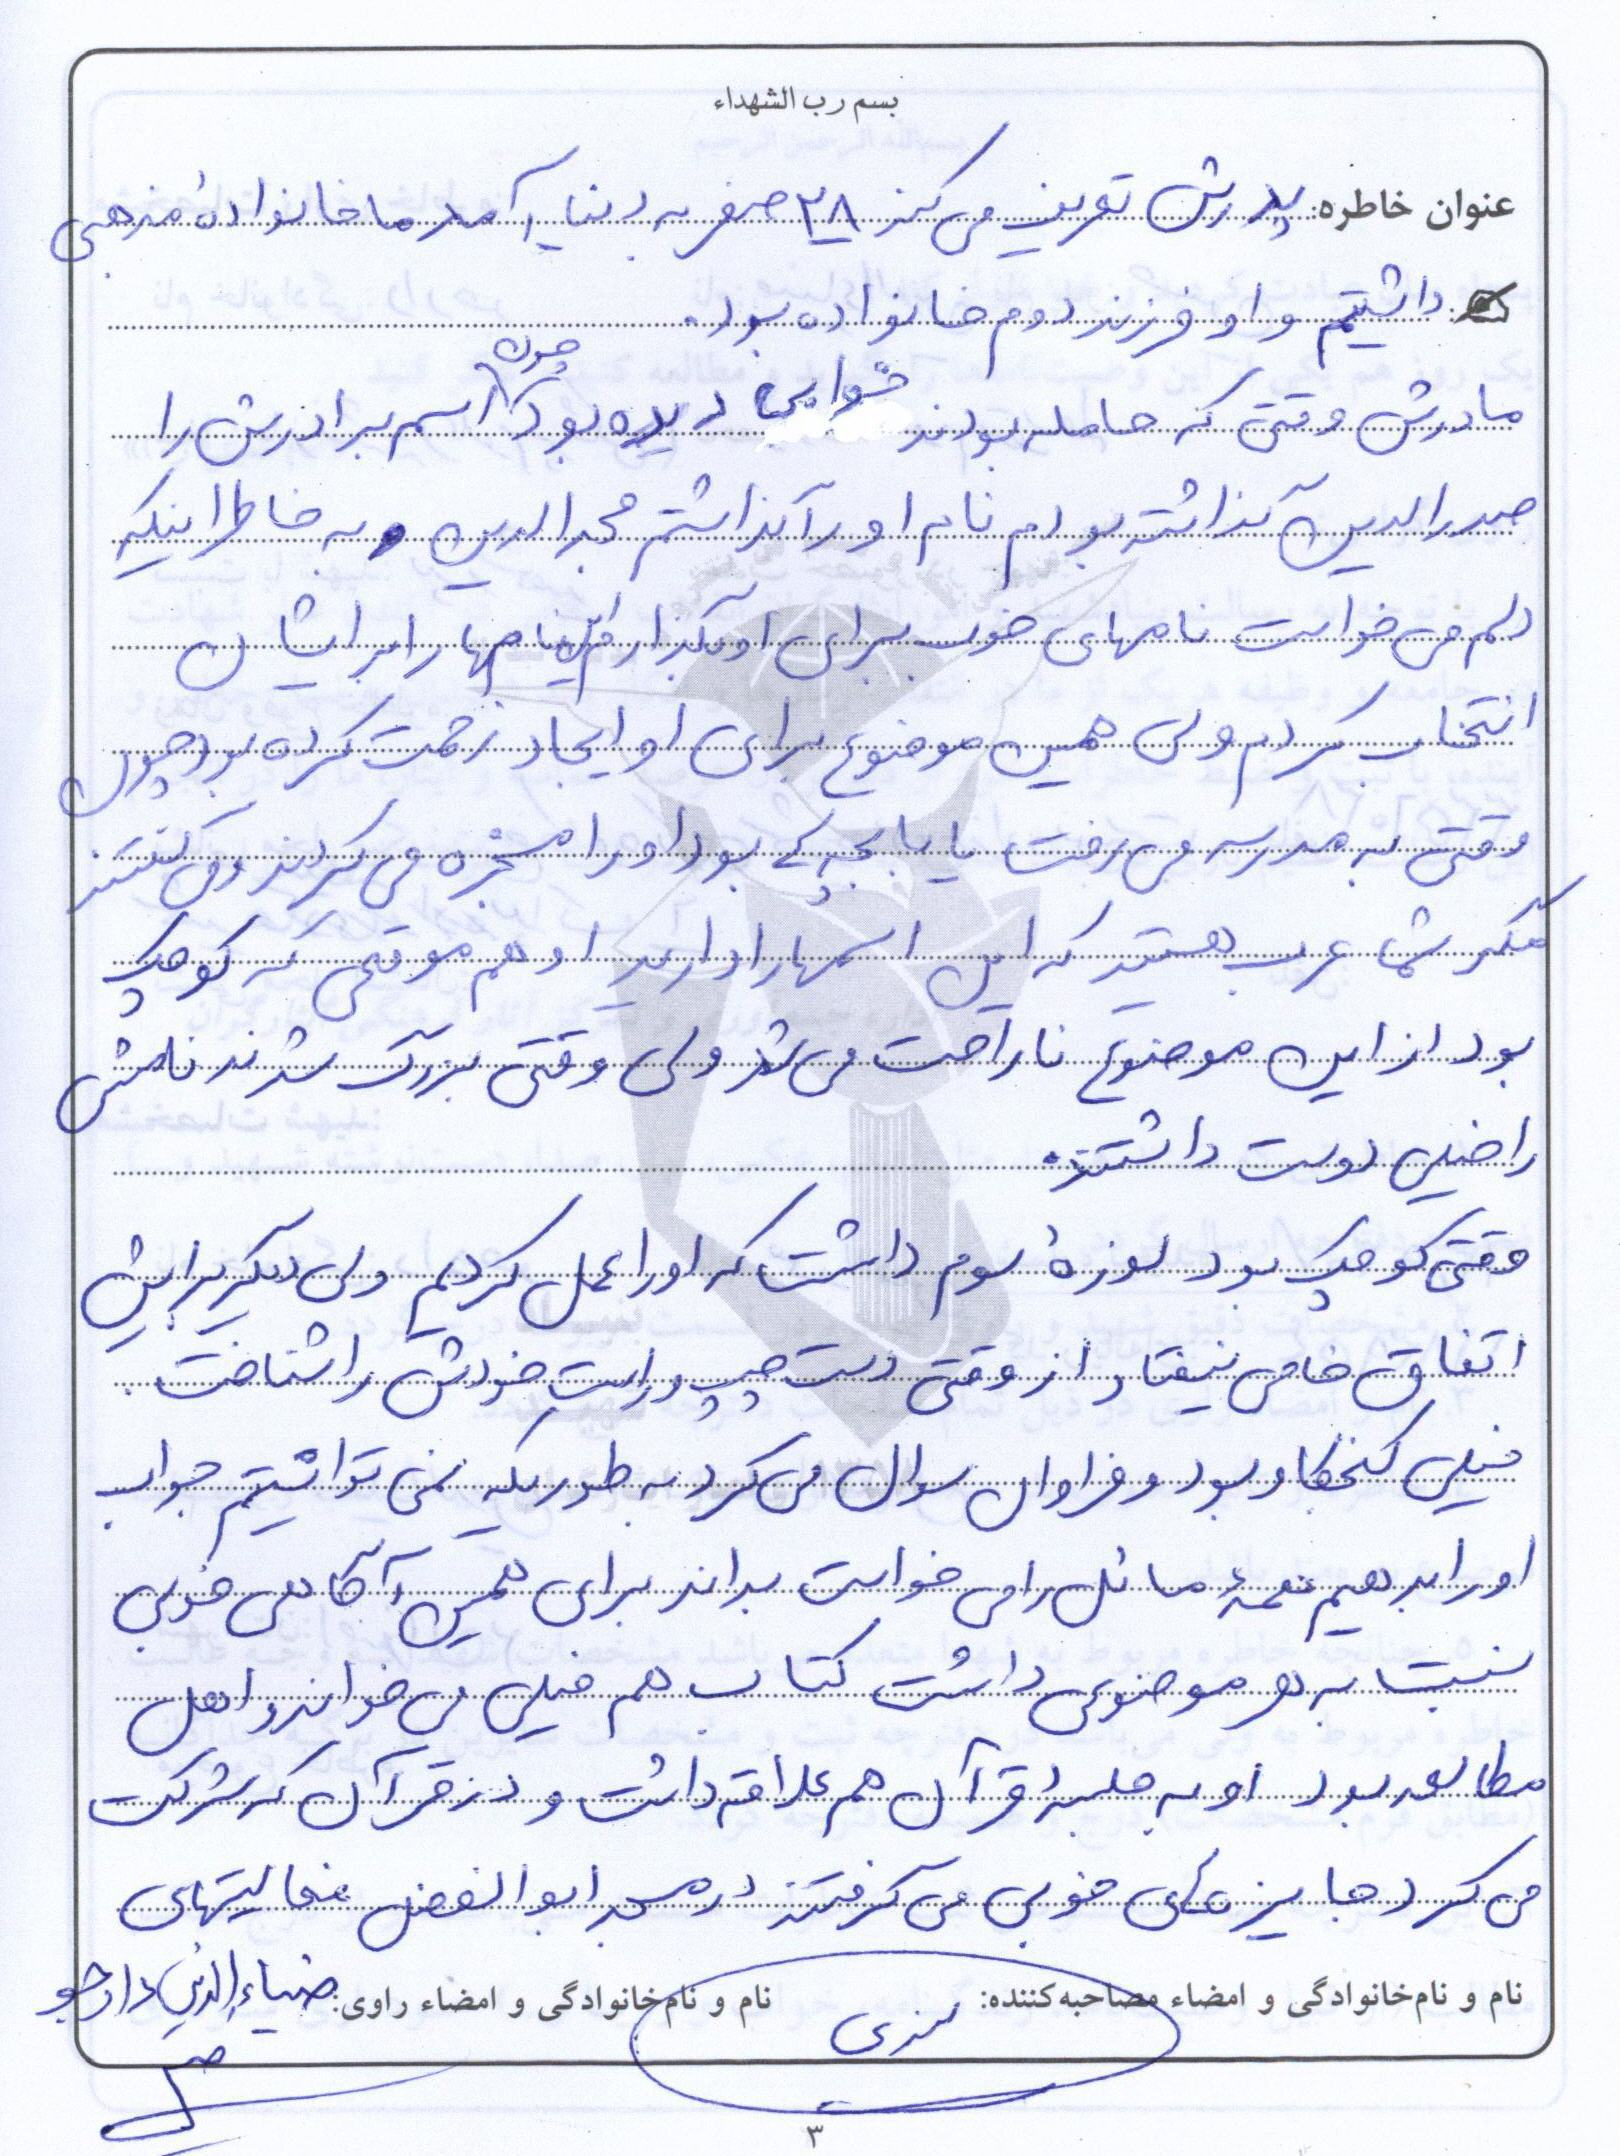 بسم رب الشهداء
عنوان خاطره: پدرش تعریف می کند ۲۸ صفر به دنیا آمد ما خانوادهٔ مذهبی
داشتیم و او فرزند دوم خانواده بود.
مادرش وقتی که حامله بودند خوابی دیده بود چون اسم برادرش را
صدرالدین گذاشته بودم نام او را گذاشتم مجدالدین و به خاطر اینکه
دلم می خواست نامهای خوب برای او بگذارم این نامها را برایشان
انتخاب کردم ولی همین موضوع برای او ایجاد زحمت کرده بود چون
وقتی به مدرسه می رفت یا با بچه ها بود او را مسخره می کردند و می گفتند
مگر شما عرب هستید که این اسمها را دارید او هم موقعی که کوچک
بود از این موضوع ناراحت می شد ولی وقتی بزرگ شدند نامش
را خیلی دوست داشتند.
وقتی کوچک بود لوزهٔ سوم داشت که او را عمل کردیم ولی دیگر برایش
اتفاق خاصی نیفتاد از وقتی دست چپ و راست خودش را شناخت.
خیلی کنجکاو بود و فراوان سوال می کرد به طوریکه نمی توانستیم جواب
او را بدهیم همهٔ مسائل را می خواست بداند برای همین آگاهی خوبی
نسبت به هر موضوعی داشت کتاب هم خیلی می خواند و اهل
مطالعه بود او به جلسه قرآن هم علاقه داشت و در قرآن که شرکت
می کرد جایزه های خوبی می گرفتند در مسجد ابوالفضل فعالیتهای
نام و نام‌خانوادگی و امضاء مصاحبه‌کننده: نام و نام‌خانوادگی و امضاء راوی: ضیاءالدین
۳